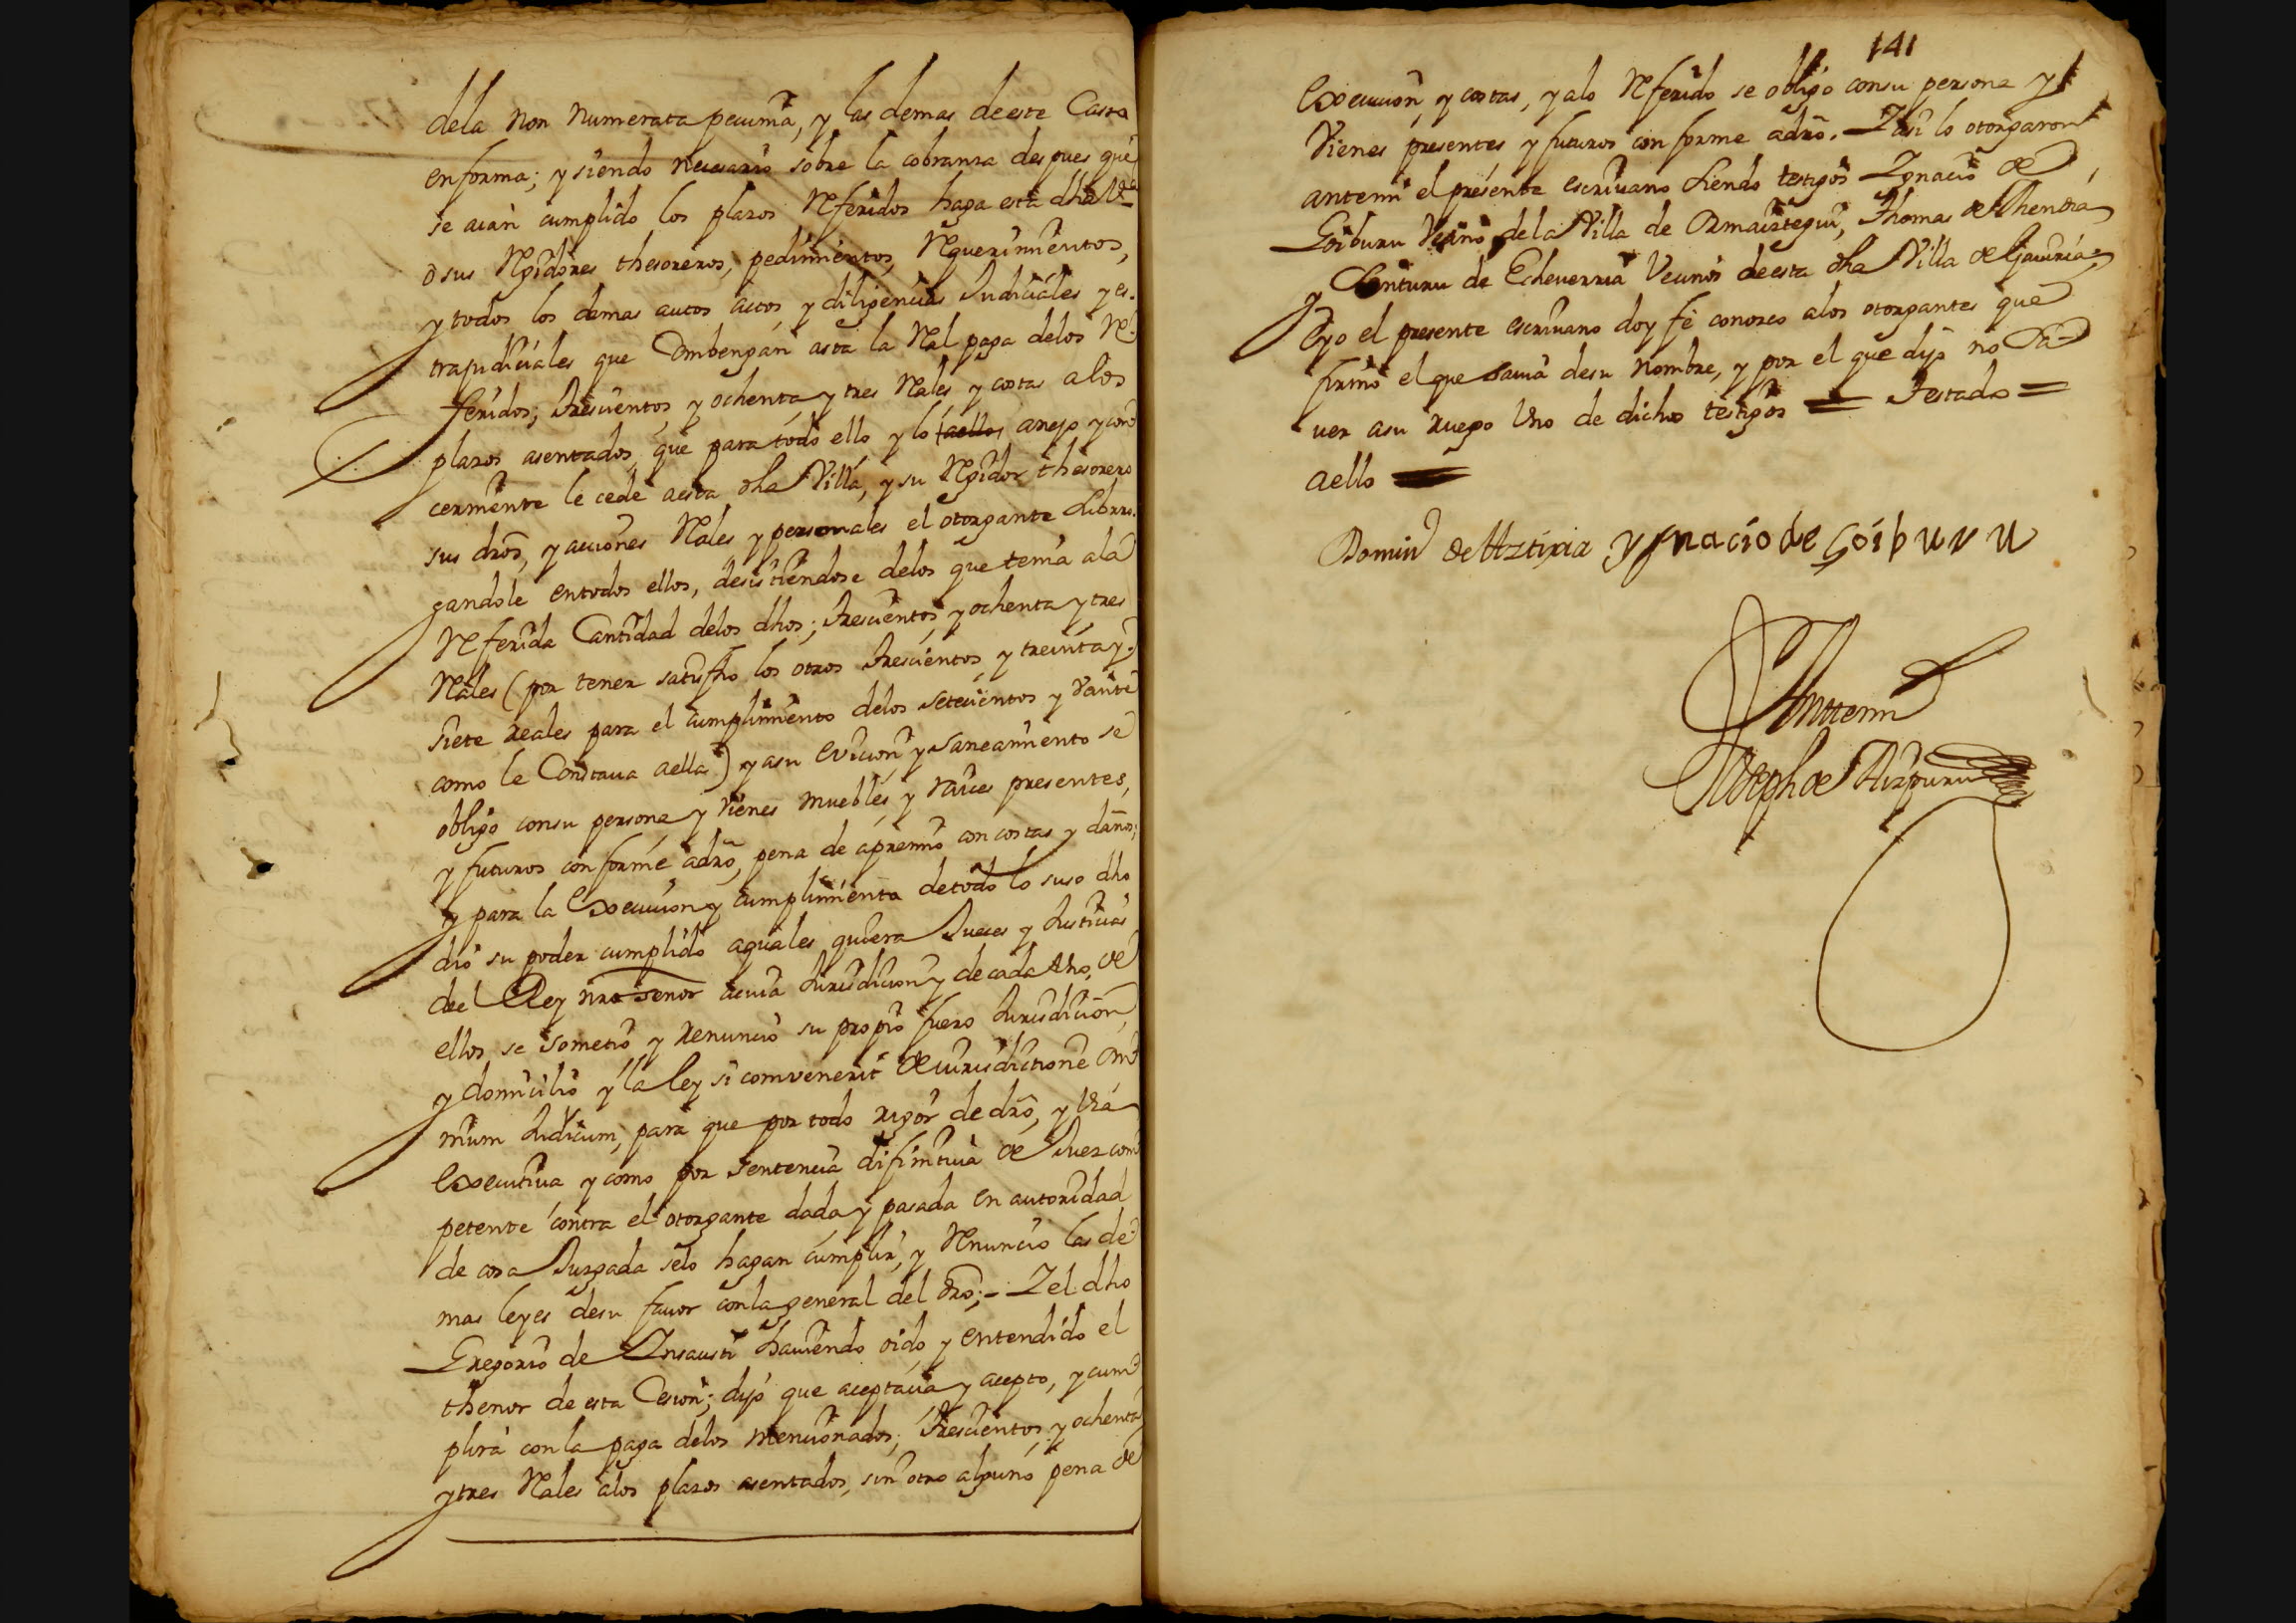 dela non numerata pecunia, y las demas de este Casso
en forma; y siendo necesario sobre la cobranza despues que
se aian cumplido los plazos Referidos haga esta dha Vª
o sus Regidores thesoreros, pedimientos, Requerimientos,
y todos los demas autos actos, y diligencias Judiciales y es-
trajudiciales que combengan asta la Real paga delos Re-
feridos; trescientos, y ochenta y tres Reales y costas alos
plazos asentados, que para todo ello y lo aello, anejo y con
cerniente le cede aesta dha Villa, y su Regidor thesorero
sus dros, y acciones Reales y personales el otorgante Subrro-
gandole entodos ellos, desistiendose delos que tenia ala
Referida Cantidad delos dhos; trescientos, y ochenta y tres
Reales (por tener satisfho los otros trescientos, y treinta y
siete reales para el cumplimiento delos setecientos y vainte
como le Constaua aella) y asu eviccion y saneamiento se
obligo consu persona y vienes muebles, y raices presentes,
y futuros conforme adro, pena de apremio con costas y daños;
y para la Execucion y cumplimiento detodo lo suso dho
dio su poder cumplido aquales quiera Jueces y Justicias
del Rey nro senor acuia Jurisdicion y de cada Uno, de
ellos se sometio y renuncio su propio fuero Jurisdicion,
y domicilio y la ley si comvenerit de iurisdictione Om
nium Judicum, para que por todo rigor de dro, y via
executiua y como por sentencia difinitiua de Juez com
petente contra el otorgante dada y pasada en autoridad
de cosa Juzgada selo hagan cumplir, y Renuncio las de
mas leyes desu fauor conla general del dro;- Y el dho
Gregorio de Ynsausti hauiendo oido y entendido el
thenor de esta Cesion; dijo que aceptaua y acepto, y cum
plira conla paga delos mencionados; trescientos, y ochenta
y tres Reales alos plazos asentados, sin otro alguno pena de
141
Execucion, y costas, y alo Referido se obligo consu persona y
Vienes presentes y futuros conforme adro. Y asi lo otorgaron
antemi el presente escriuano siendo testigos Ygnacio de
Goiburu Vecino dela Villa de Ormaiztegui, Thomas de Mendia
y Bentura de Echeuerria Vecinos de esta dha Villa de Gauiria,
e yo el presente escriuano doy fe conozco alos otorgantes que
firmo el que sauia desu nombre, y por el que dijo no sa-
uer asu ruego Uno de dichos testigos = Testado =
aello
Domin de Aztiria Ygnacio de Goiburu
Anttemi
Joseph de Aizpuru